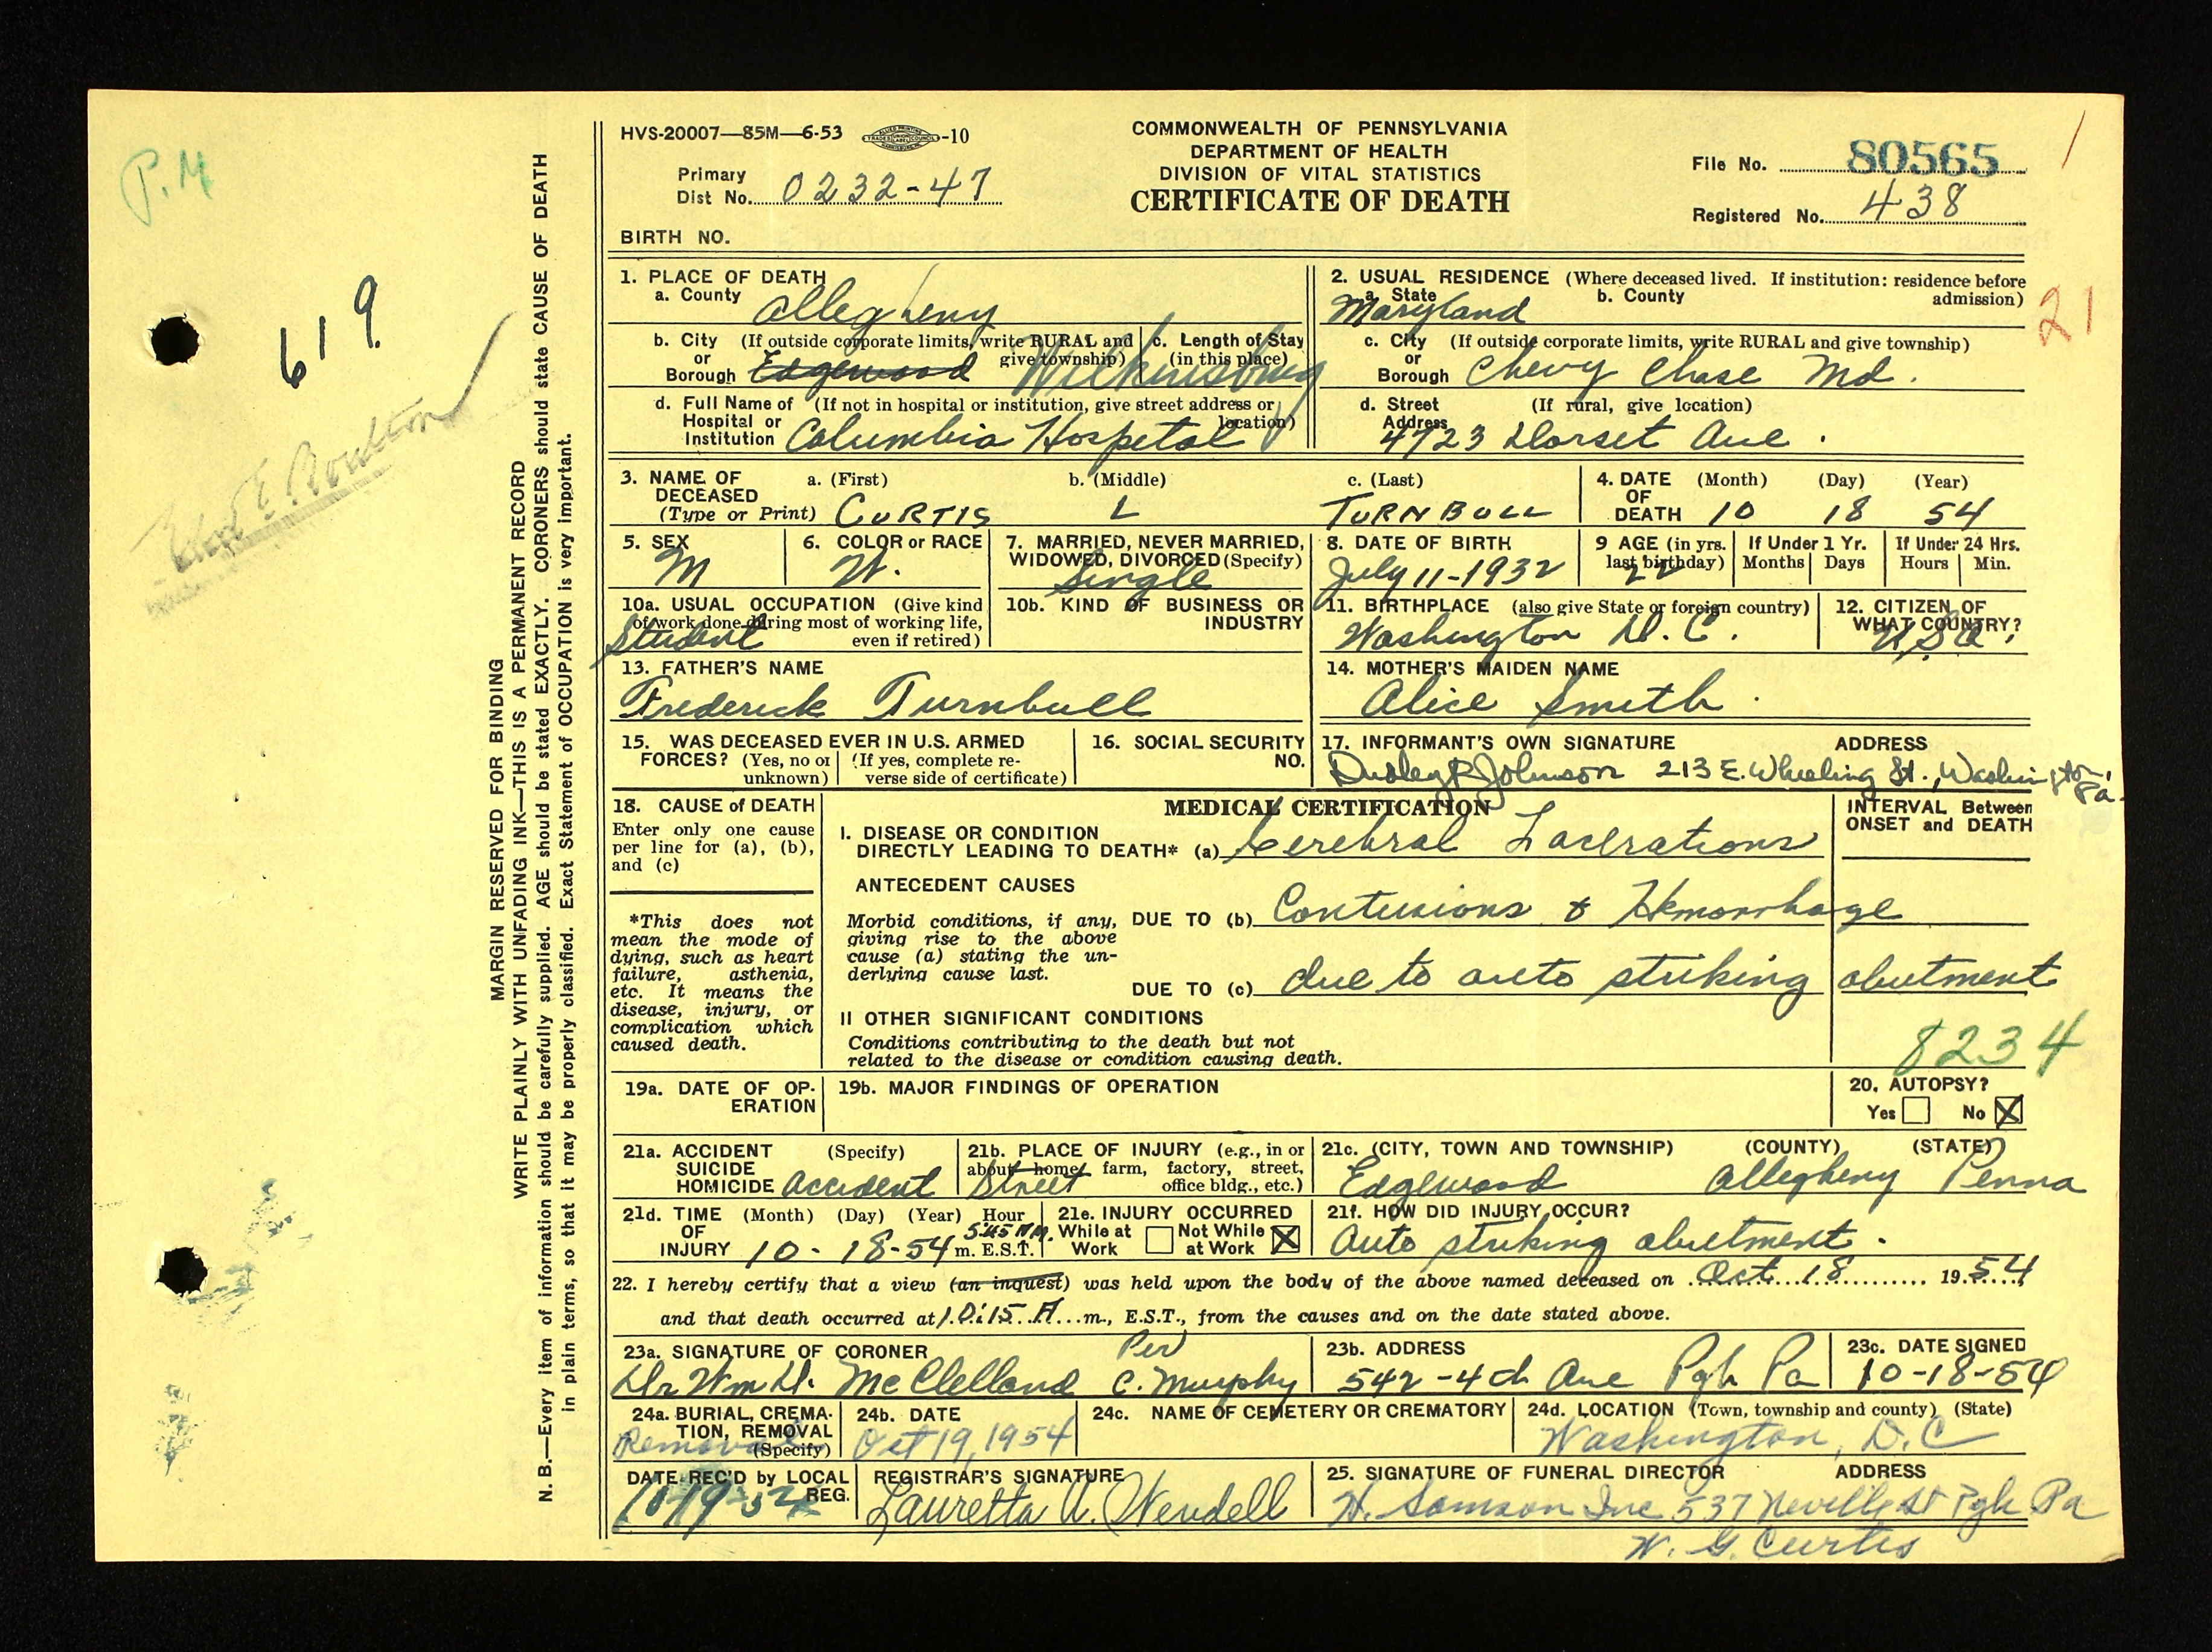 HVS-20007—85M—6-53 -10
COMMONWEALTH OF PENNSYLVANIA
DEPARTMENT OF HEALTH
DIVISION OF VITAL STATISTICS
CERTIFICATE OF DEATH
Primary
Dist No. 0232-47
File No. 80565
Registered No. 438
BIRTH NO.
P.M
619
21
MARGIN RESERVED FOR BINDING
WRITE PLAINLY WITH UNFADING INK—THIS IS A PERMANENT RECORD
N. B.—Every item of information should be carefully supplied. AGE should be stated EXACTLY. CORONERS should state CAUSE OF DEATH
in plain terms, so that it may be properly classified. Exact Statement of OCCUPATION is very important.
1. PLACE OF DEATH
a. County Allegheny
b. City (If outside corporate limits, write RURAL and
or give township)
Borough Edgewood Wilkinsburg
c. Length of Stay
(in this place)
d. Full Name of (If not in hospital or institution, give street address or
Hospital or location)
Institution Columbia Hospital
2. USUAL RESIDENCE (Where deceased lived. If institution: residence before
a. State b. County admission)
Maryland
c. City (If outside corporate limits, write RURAL and give township)
or
Borough Chevy Chase Md.
d. Street (If rural, give location)
Address 4723 Dorset Ave.
3. NAME OF a. (First) b. (Middle) c. (Last)
DECEASED
(Type or Print) CURTIS L TURNBULL
4. DATE (Month) (Day) (Year)
OF
DEATH 10 18 54
5. SEX
M
6. COLOR or RACE
W.
7. MARRIED, NEVER MARRIED,
WIDOWED, DIVORCED (Specify)
Single
8. DATE OF BIRTH
July 11-1932
9 AGE (in yrs.
last birthday)
22
If Under 1 Yr.
Months Days
If Under 24 Hrs.
Hours Min.
10a. USUAL OCCUPATION (Give kind
of work done during most of working life,
even if retired)
Student
10b. KIND OF BUSINESS OR
INDUSTRY
11. BIRTHPLACE (also give State or foreign country)
Washington D.C.
12. CITIZEN OF
WHAT COUNTRY?
U.S.A.
13. FATHER'S NAME
Frederick Turnbull
14. MOTHER'S MAIDEN NAME
Alice Smith
15. WAS DECEASED EVER IN U.S. ARMED
FORCES? (Yes, no or (If yes, complete re-
unknown) verse side of certificate)
16. SOCIAL SECURITY
NO.
17. INFORMANT'S OWN SIGNATURE ADDRESS
Dudley R Johnson 213 E. Wheeling St., Washington, Pa.
18. CAUSE of DEATH
Enter only one cause
per line for (a), (b),
and (c)
*This does not
mean the mode of
dying, such as heart
failure, asthenia,
etc. It means the
disease, injury, or
complication which
caused death.
MEDICAL CERTIFICATION
INTERVAL Between
ONSET and DEATH
I. DISEASE OR CONDITION
DIRECTLY LEADING TO DEATH* (a) Cerebral Lacerations
ANTECEDENT CAUSES
Morbid conditions, if any,
giving rise to the above
cause (a) stating the un-
derlying cause last.
DUE TO (b) Contusions & Hemorrhage
DUE TO (c) due to auto striking abutment
II OTHER SIGNIFICANT CONDITIONS
Conditions contributing to the death but not
related to the disease or condition causing death.
8234
19a. DATE OF OP-
ERATION
19b. MAJOR FINDINGS OF OPERATION
20. AUTOPSY?
Yes No X
21a. ACCIDENT (Specify)
SUICIDE
HOMICIDE Accident
21b. PLACE OF INJURY (e.g., in or
about home, farm, factory, street,
office bldg., etc.)
Street
21c. (CITY, TOWN AND TOWNSHIP) (COUNTY) (STATE)
Edgewood Allegheny Penna
21d. TIME (Month) (Day) (Year) Hour
OF 5:45 AM.
INJURY 10-18-54 m. E.S.T.
21e. INJURY OCCURRED
While at Not While
Work at Work X
21f. HOW DID INJURY OCCUR?
Auto striking abutment.
22. I hereby certify that a view (an inquest) was held upon the body of the above named deceased on Oct. 18 1954
and that death occurred at 10:15 A m., E.S.T., from the causes and on the date stated above.
23a. SIGNATURE OF CORONER
Dr Wm D. McClelland Per C. Murphy
23b. ADDRESS
542-4th Ave Pgh Pa
23c. DATE SIGNED
10-18-54
24a. BURIAL, CREMA-
TION, REMOVAL
(Specify)
Removal
24b. DATE
Oct 19, 1954
24c. NAME OF CEMETERY OR CREMATORY
24d. LOCATION (Town, township and county) (State)
Washington, D.C
DATE REC'D by LOCAL
REG.
10-19-54
REGISTRAR'S SIGNATURE
Lauretta A. Wendell
25. SIGNATURE OF FUNERAL DIRECTOR ADDRESS
H. Samson Inc 537 Neville St Pgh Pa
W. G. Curtis